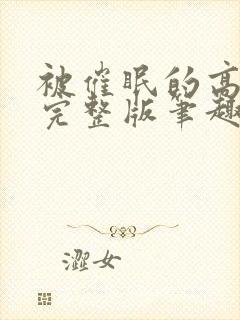 被催眠的高
完整版笔趣
澀女